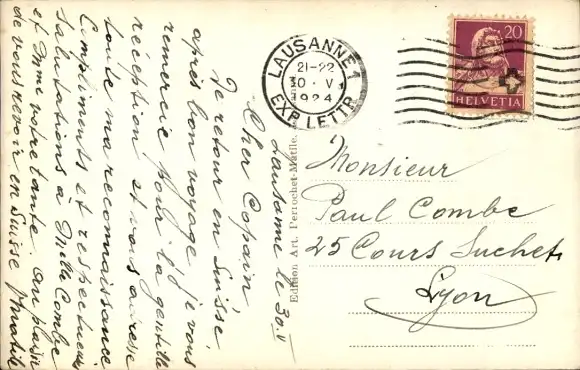 LAUSANNE 1
21-22
30·V
1924
EXP. LETTR.
20
HELVETIA
Lausanne le 30.V
Cher Copain,
De retour en Suisse
après bon voyage, je vous
remercie pour la gentille
réception et vous adresse
toute ma reconnaissance
Compliments et respectueuses
Salutations à Mlle Combe
et Mme votre tante. Au plaisir
de vous revoir en Suisse
Edition Art. Perrochet-Matile.
Monsieur
Paul Combe
25 Cours Suchet
Lyon